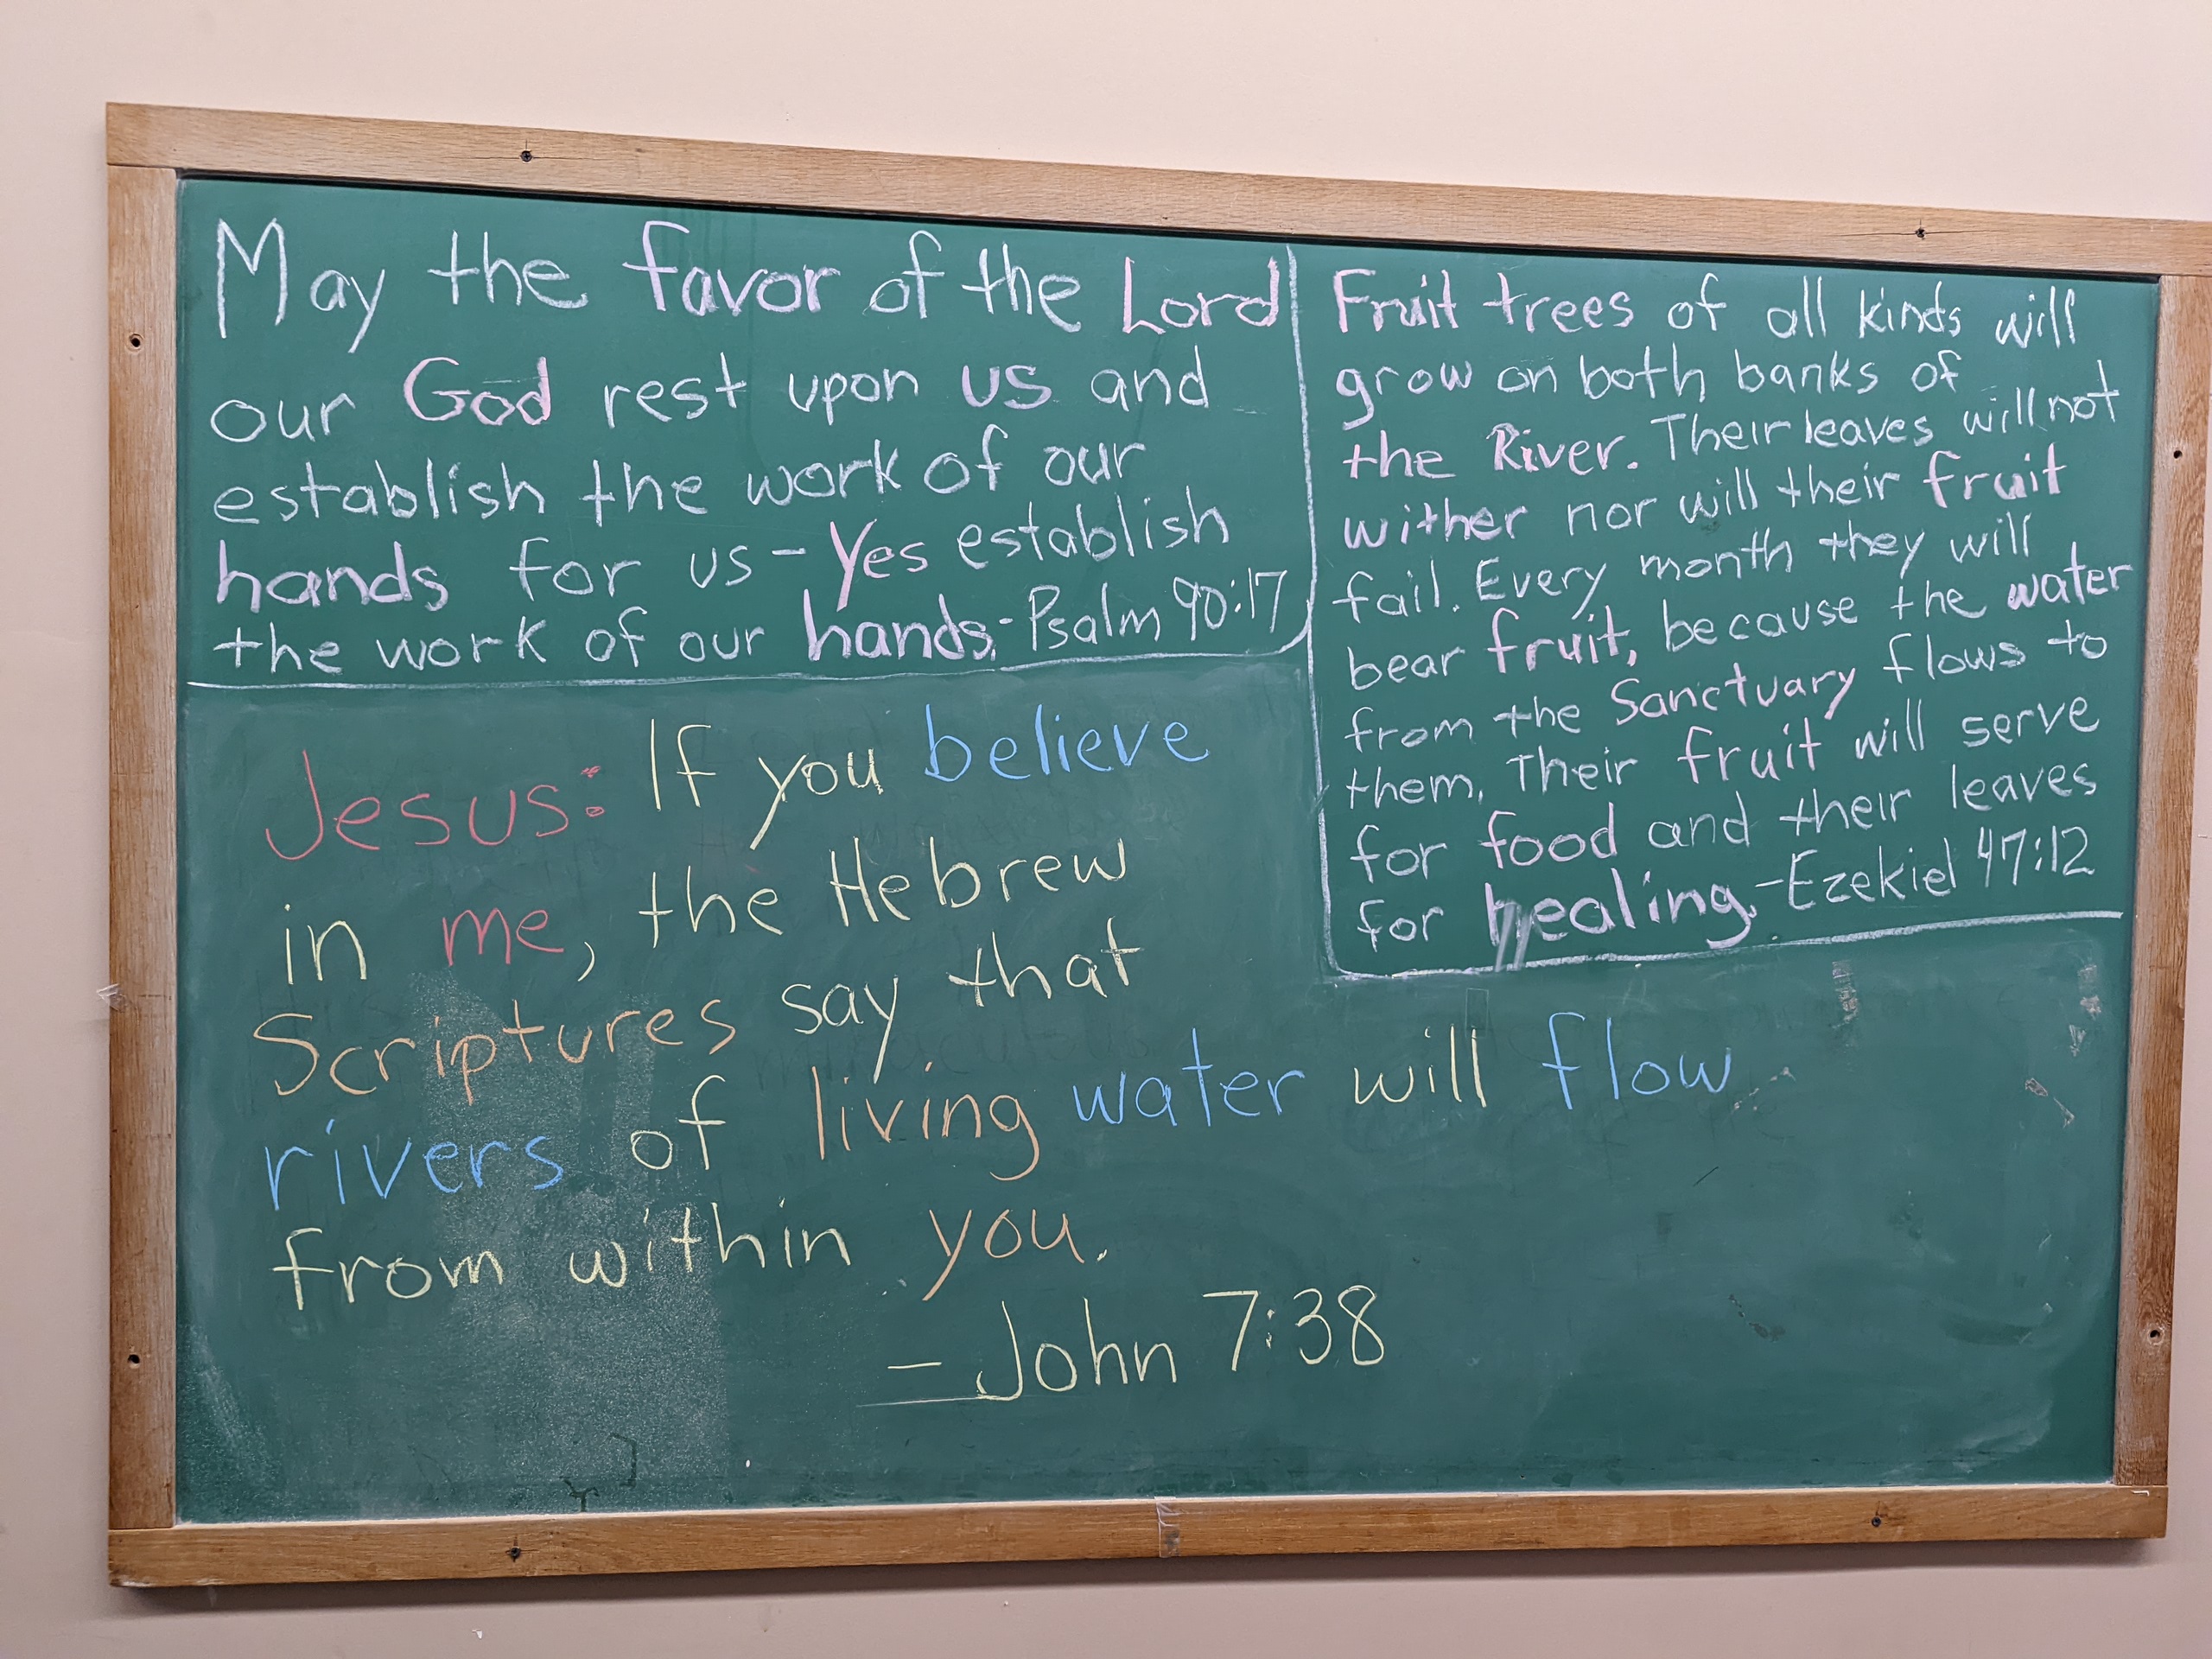 May the favor of the Lord
our God rest upon us and
establish the work of our
hands for us - Yes establish
the work of our hands. - Psalm 90:17
Fruit trees of all kinds will
grow on both banks of
the River. Their leaves will not
wither nor will their fruit
fail. Every month they will
bear fruit, because the water
from the Sanctuary flows to
them. Their fruit will serve
for food and their leaves
for healing. - Ezekiel 47:12
Jesus: If you believe
in me, the Hebrew
Scriptures say that
rivers of living water will flow
from within you.
- John 7:38